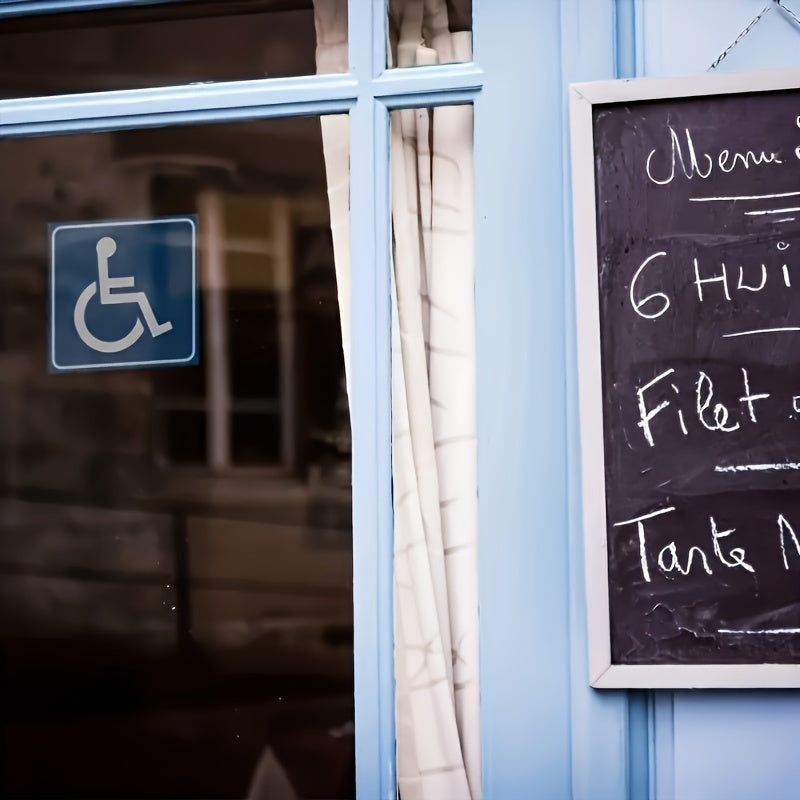 Menu
6 Hui
Filet
Tarte